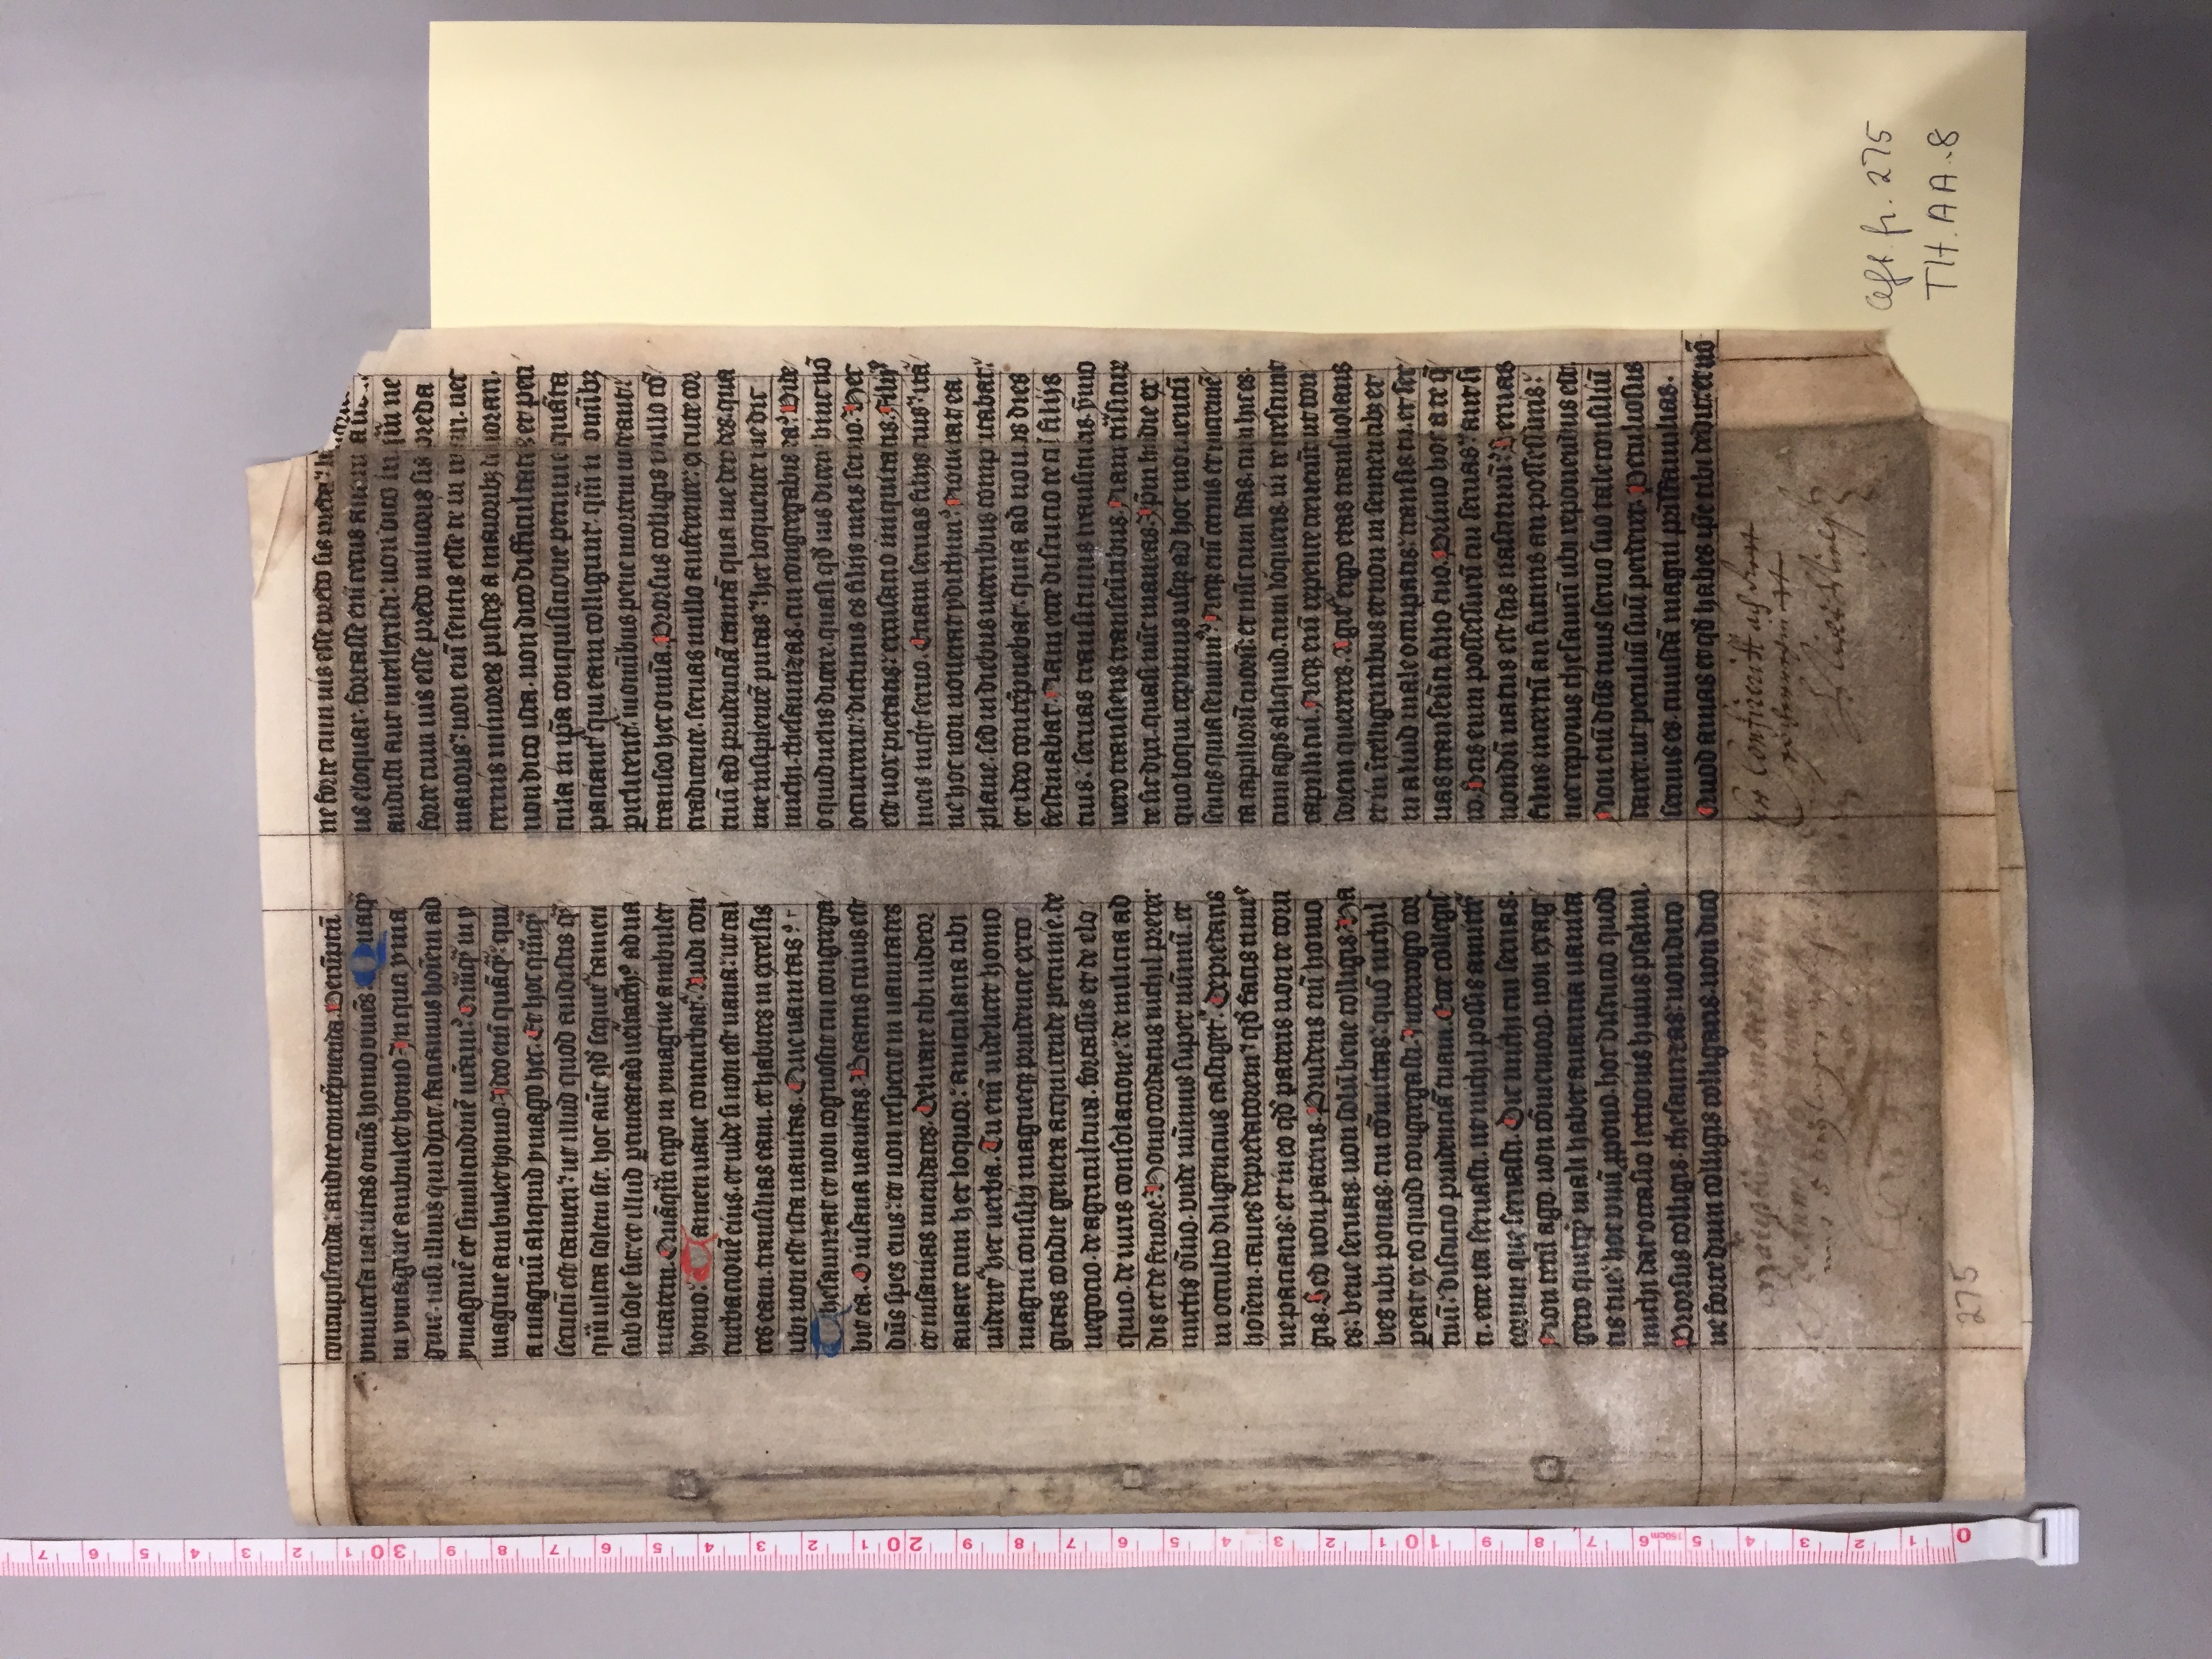 concupiscenda: audite contēpnenda. Verūptū
vniuersa uanitas omīs homo viuēs. Quāqͣ
in ymagine ambulet homo. In qua yma
gine. nisi illius qui dixit. faciamus hoīem ad
ymaginē et similitudinē nr̄am. Quāqͣ in y
magine ambulet homo. Ideo enī quāqͣ: qui
a magnū aliquid ymago hec. Et hoc quāqͣ
secutū est tamen: ut illud quod audistis qͣ
qͣm ultra solem sit. hoc aūt qd̄ sequitͬ tamen
sub sole sit: et illud ꝑtineat ad ueritatē h̊ ad ua
nitatem. Quāqͣm ergo in ymagine ambulet
homo: Tamen uane conturbatͬ. Audi con
turbacionē eius. et uide si non est uana: ut cal
ces eam. transilias eam. et habites in excelsis
ubi non est ista uanitas. Que uanitas?
Thesaurizat et non cognoscit cui congrega
bit ea. O insana uanitas. Beatus cuius est
dn̄s spes eius: et non respexit in uanitates
et insanias mendaces. Delirare tibi uideor
auare cum hec loquor: anicularia tibi
uidentͬ hec uerba. Tu enī uidelicet homo
magni consilij magneqꝫ prudencie exco
gitas cotidie genera acquirende pecunie. de
negocio. de agricultura. fortassis et de elo
quio. de iuris consolacione: de milicia ad
dis et de fenore. Homo cordatus nichil preter
mittis oīno. vnde nūmus super nūmū. et
in occulto diligencius castigetͬ. Depredaris
hoīem. caues depredatorem: qd̄ facis times
ne paciaris: et in eo qd̄ pateris non te corri
gis. Sed non pateris. Prudens enī homo
es: bene seruas. non solū bene colligis. Ha
bes ubi ponas. cui cōmittas: quō nichil
pereat ex eo quod congregasti. Interrogo cor
tuū: discucio prudenciā tuam. Ecce collegis
ti. ecce ita seruasti. ut nichil possis amittē
eorum que seruasti. Dic michi cui seruas.
Non tecū ago. non cōmemoro. non exag
gero quicqͣ mali habet auaricia uanita
tis tue: hoc vnū ꝓpono. hoc discucio quod
michi dat occasio lectionis huius psalmi.
Prorsus colligis. thesaurizas: non dico
ne forte dum colligis colligaris. non dico
ne forte cum uis esse predo sis preda:
us eloquar. fortasse enī cecus
audisti aut intellexisti: non dico in qͣm ne
forte cum uis esse predo minoris sis preda
maioris: non enī sentis esse te in mari. nec
cernis minores pisces a maioribꝫ deuorari.
non dico ista. non dico difficultates et peri
cula in ip̄a conquisicione pecunie quāta
paciantͬ qui eam colligunt. qͣm in omībꝫ
periclitentͬ. in omnibus pene mortem uideant:
transeo hec omīa. Prorsus colligis nullo cō
tradicente. seruas nullo auferente: excute cor
tuū ad prudenciā tantā qua me derides. qua
me insipientē putas: hec loquente me dic
michi. thesaurizas. cui congregabis ea? Vide
o quid uelis dicere. quasi qd̄ uis dicere hinc nō
occurrerit: dicturus es filijs meis seruo. Hec
est uox pietatis: excusatio iniquitatis. Filijs
meis inqͥt seruo. Etiam seruas filijs tuis: itā
ne hoc non nouerat ydithun? Nouerat ea
plane. sed in diebus ueteribus computabat:
et ideo contēpnebat. quia ad nouos dies
festinabat. Nam ecce discucio te cū filijs
tuis. seruas transiturus transituris. ymo
vero transiens transeūtibus. Nam trāsiture
te sic dixi. quasi nūc maneas. Ip̄m hodie ex
quo loqui cepimus usqꝫ ad hoc momentū
sentis quia senuimꝰ? Neqꝫ enī cernis et incremē
ta capillorū tuorū: et nūc cum stas. cum hic es.
cum agis aliquid. cum loqueris. in te crescunt
capilli tui. Neqꝫ enī repente creuerūt ut ton
sorem quereres. Agitͬ ergo etas transuolans
et in intelligentibus et non in sentientibꝫ et
in aliud male occupatis: transis tu. et ser
uas transeūti filio tuo. Primo hoc a te q̄
ro. Scis eum possessurū cui seruas: aut si
nondū natus est scis nasciturū? Seruas
filijs incertū an futuris an possessuris:
nec reponis thesaurū ubi reponendus est.
Non enī dn̄s tuus seruo suo tale consiliū
daret. ut peculiū suū perderet. Peculiosus
seruus es. cuiusdā magni pr̄isfamilias.
Quod amas et qd̄ habes ip̄e tibi dedit: et nō
Niels Nielß
275
Cgt fr. 275
TH. AA. 8